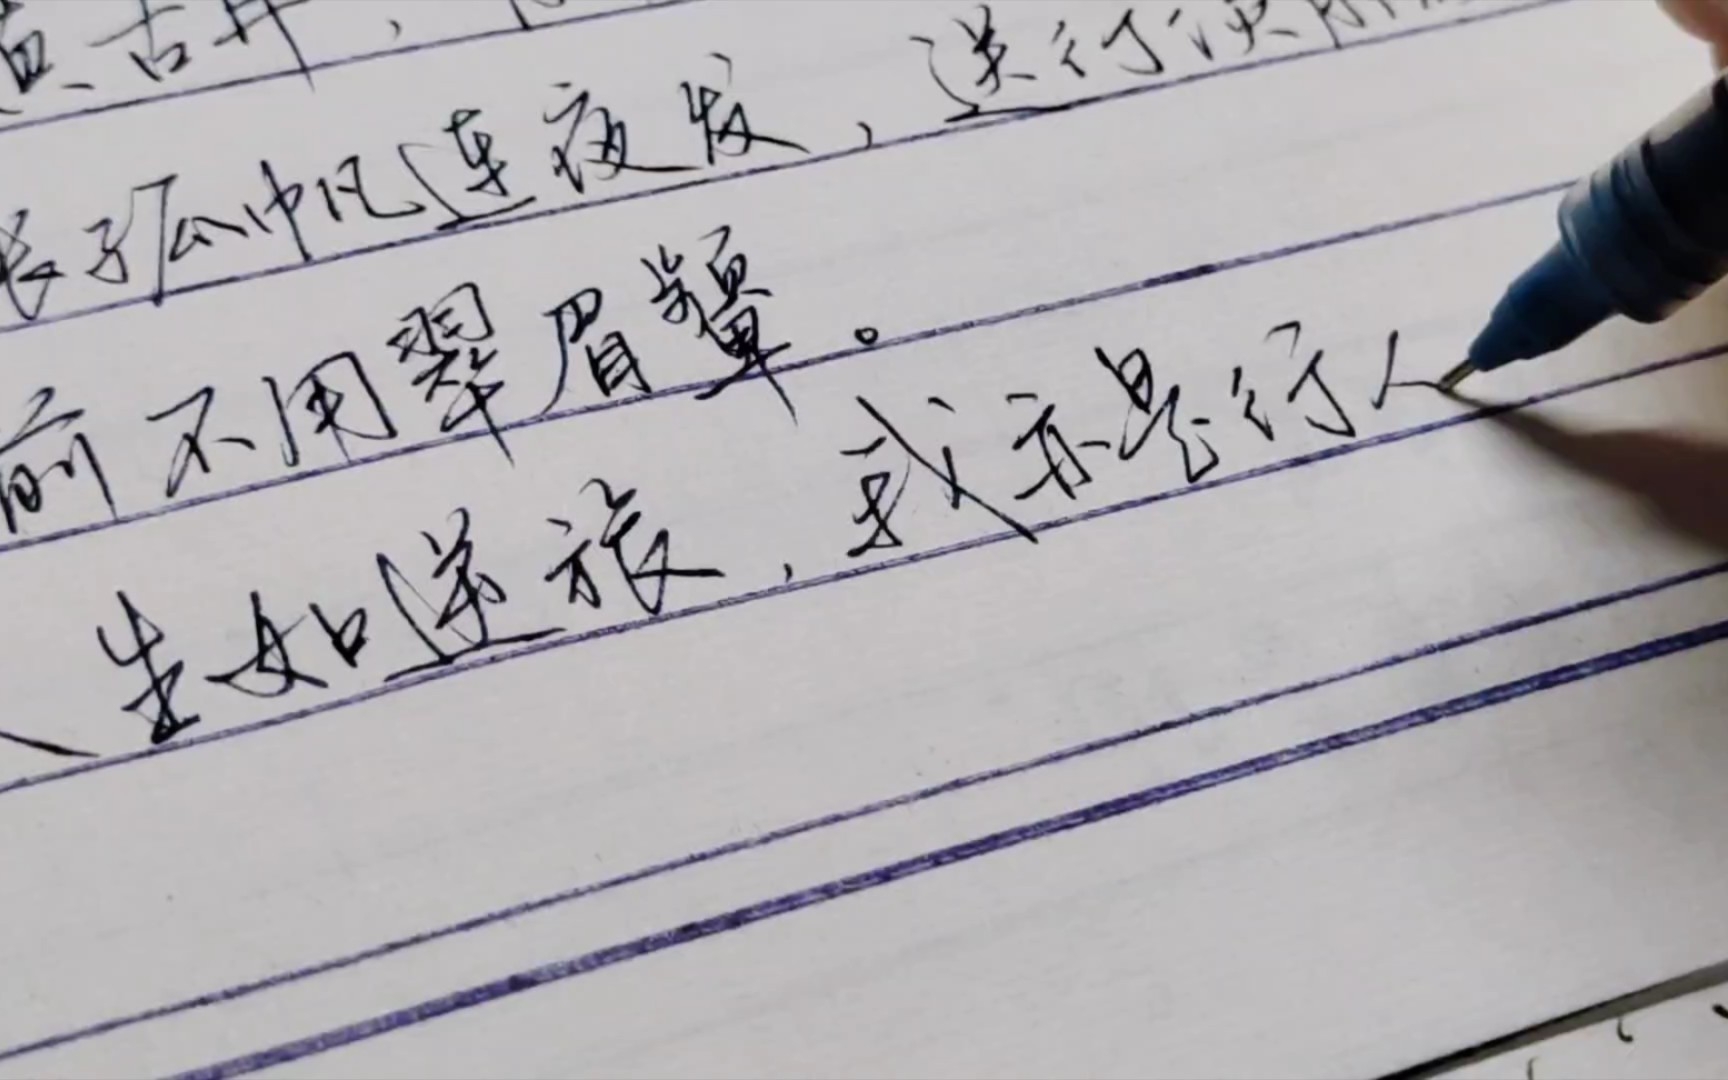 真古井，
孤帆连夜发，送行淡
前不用翠眉颦。
人生如逆旅，我亦是行人